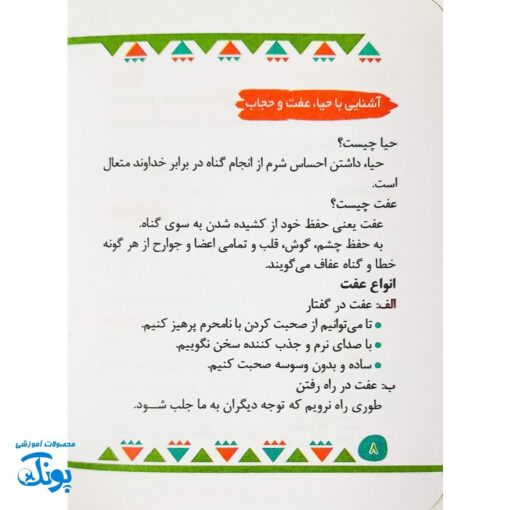 آشنایی با حیا، عفت و حجاب
حیا چیست؟
حیا، داشتن احساس شرم از انجام گناه در برابر خداوند متعال
است.
عفت چیست؟
عفت یعنی حفظ خود از کشیده شدن به سوی گناه.
به حفظ چشم، گوش، قلب و تمامی اعضا و جوارح از هر گونه
خطا و گناه عفاف می‌گویند.
انواع عفت
الف: عفت در گفتار
• تا می‌توانیم از صحبت کردن با نامحرم پرهیز کنیم.
• با صدای نرم و جذب کننده سخن نگوییم.
• ساده و بدون وسوسه صحبت کنیم.
ب: عفت در راه رفتن
طوری راه نرویم که توجه دیگران به ما جلب شــود.
۸
محصولات آموزشی
پونک